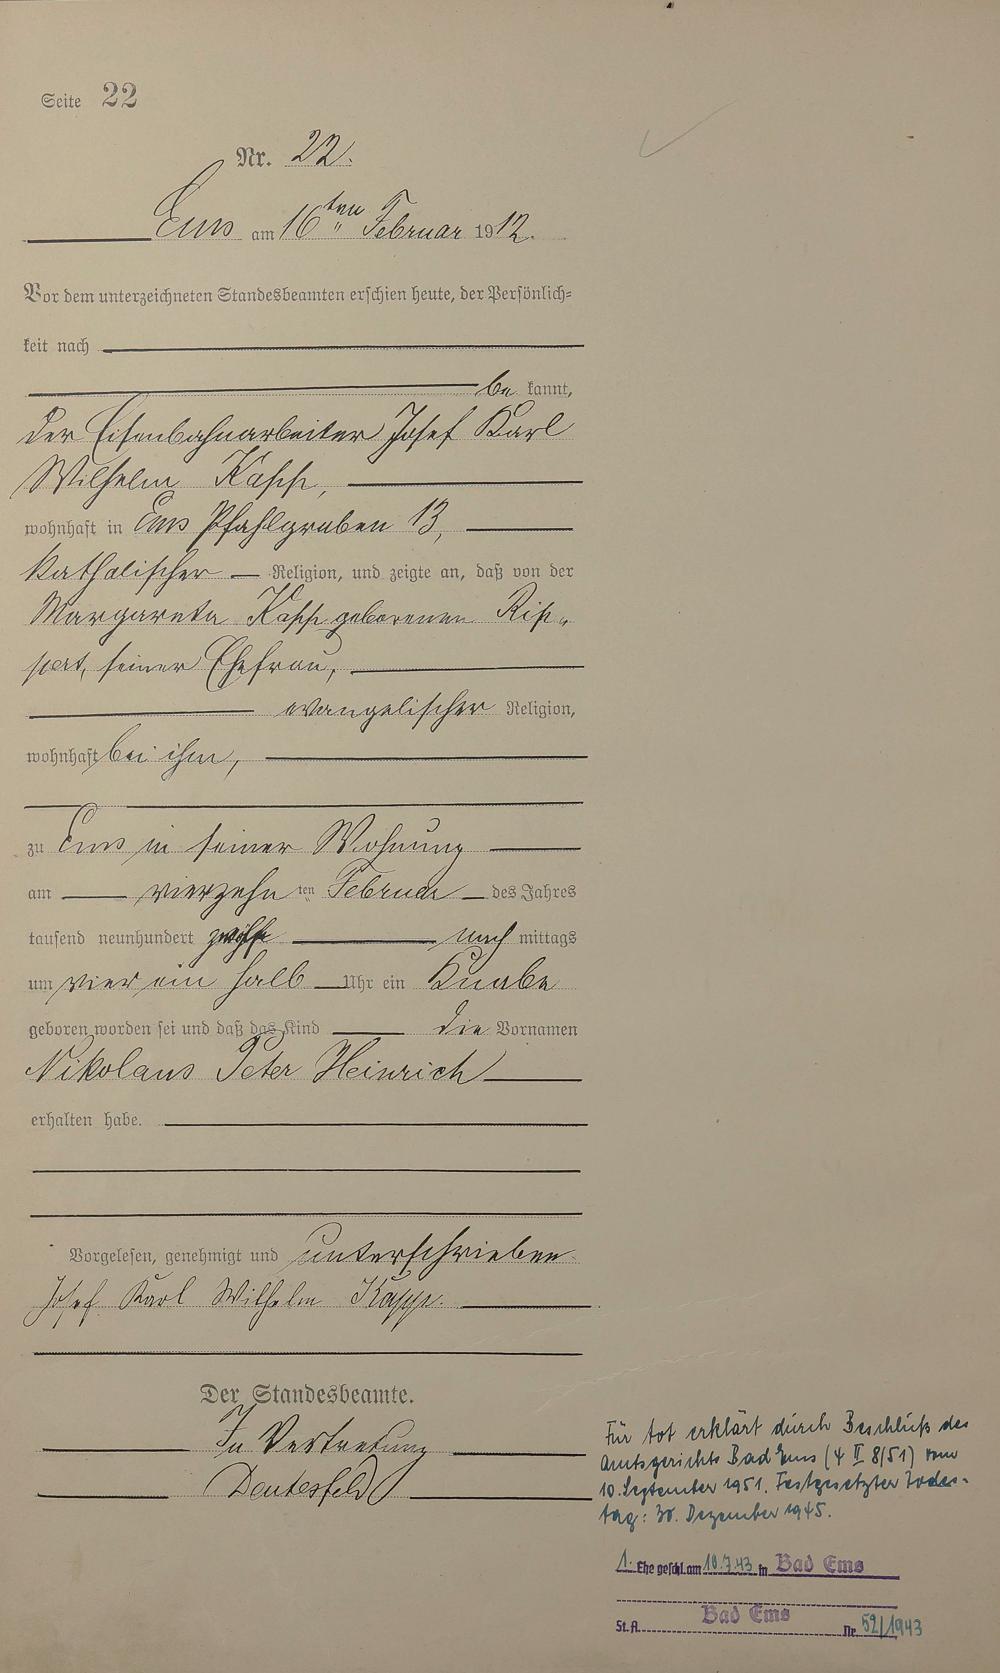 Seite 22
Nr. 22.
Ems am 16ten Februar 1912.
Vor dem unterzeichneten Standesbeamten erschien heute, der Persönlich=
keit nach
be kannt,
der Eisenbahnarbeiter Josef Karl
Wilhelm Kapp,
wohnhaft in Ems Pfahlgraben 13,
katholischer Religion, und zeigte an, daß von der
Margareta Kapp geborenen Rip-
pert, seiner Ehefrau,
evangelischer Religion,
wohnhaft bei ihm,
zu Ems in seiner Wohnung
am vierzehn ten Februar des Jahres
tausend neunhundert zwölf nach mittags
um vier ein halb Uhr ein Knabe
geboren worden sei und daß das Kind die Vornamen
Nikolaus Peter Heinrich
erhalten habe.
Vorgelesen, genehmigt und unterschrieben
Josef Karl Wilhelm Kapp.
Der Standesbeamte.
In Vertretung
Deutesfeld
Für tot erklärt durch Beschluß des
Amtsgerichts Bad Ems (4 II 8/51) vom
10. September 1951. Festgesetzter Todes-
tag: 30. Dezember 1945.
1. Ehe geschl. am 10.7.43 in Bad Ems
St. A. Bad Ems Nr. 52/1943